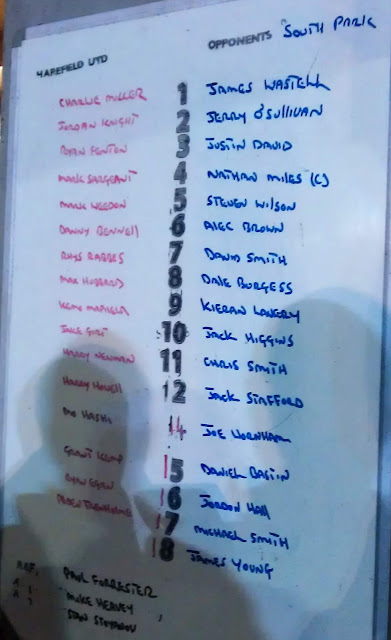 HAREFIELD UTD OPPONENTS SOUTH PARK
CHARLIE MILLER 1 JAMES WASTELL
JORDAN KNIGHT 2 JERRY O'SULLIVAN
RYAN FENTON 3 JUSTIN DAVID
MARK SARGEANT 4 NATHAN MILES (C)
MARK WEEDON 5 STEVEN WILSON
DANNY BENNELL 6 ALEC BROWN
RHYS 7 DAVID SMITH
MAX HUBBARD 8 DALE BURGESS
9 KIERAN LAVERY
JAKE 10 JACK HIGGINS
HARRY NEWMAN 11 CHRIS SMITH
HARRY HOVELL 12 JACK STAFFORD
MO HASHI 14 JOE HORNHAM
GRANT KEMP 15 DANIEL BASTIN
RYAN EGAN 16 JORDON HALL
17 MICHAEL SMITH
18 JAMES YOUNG
REF, PAUL FORRESTER
MIKE HEAVEY
STAN STOYANOV